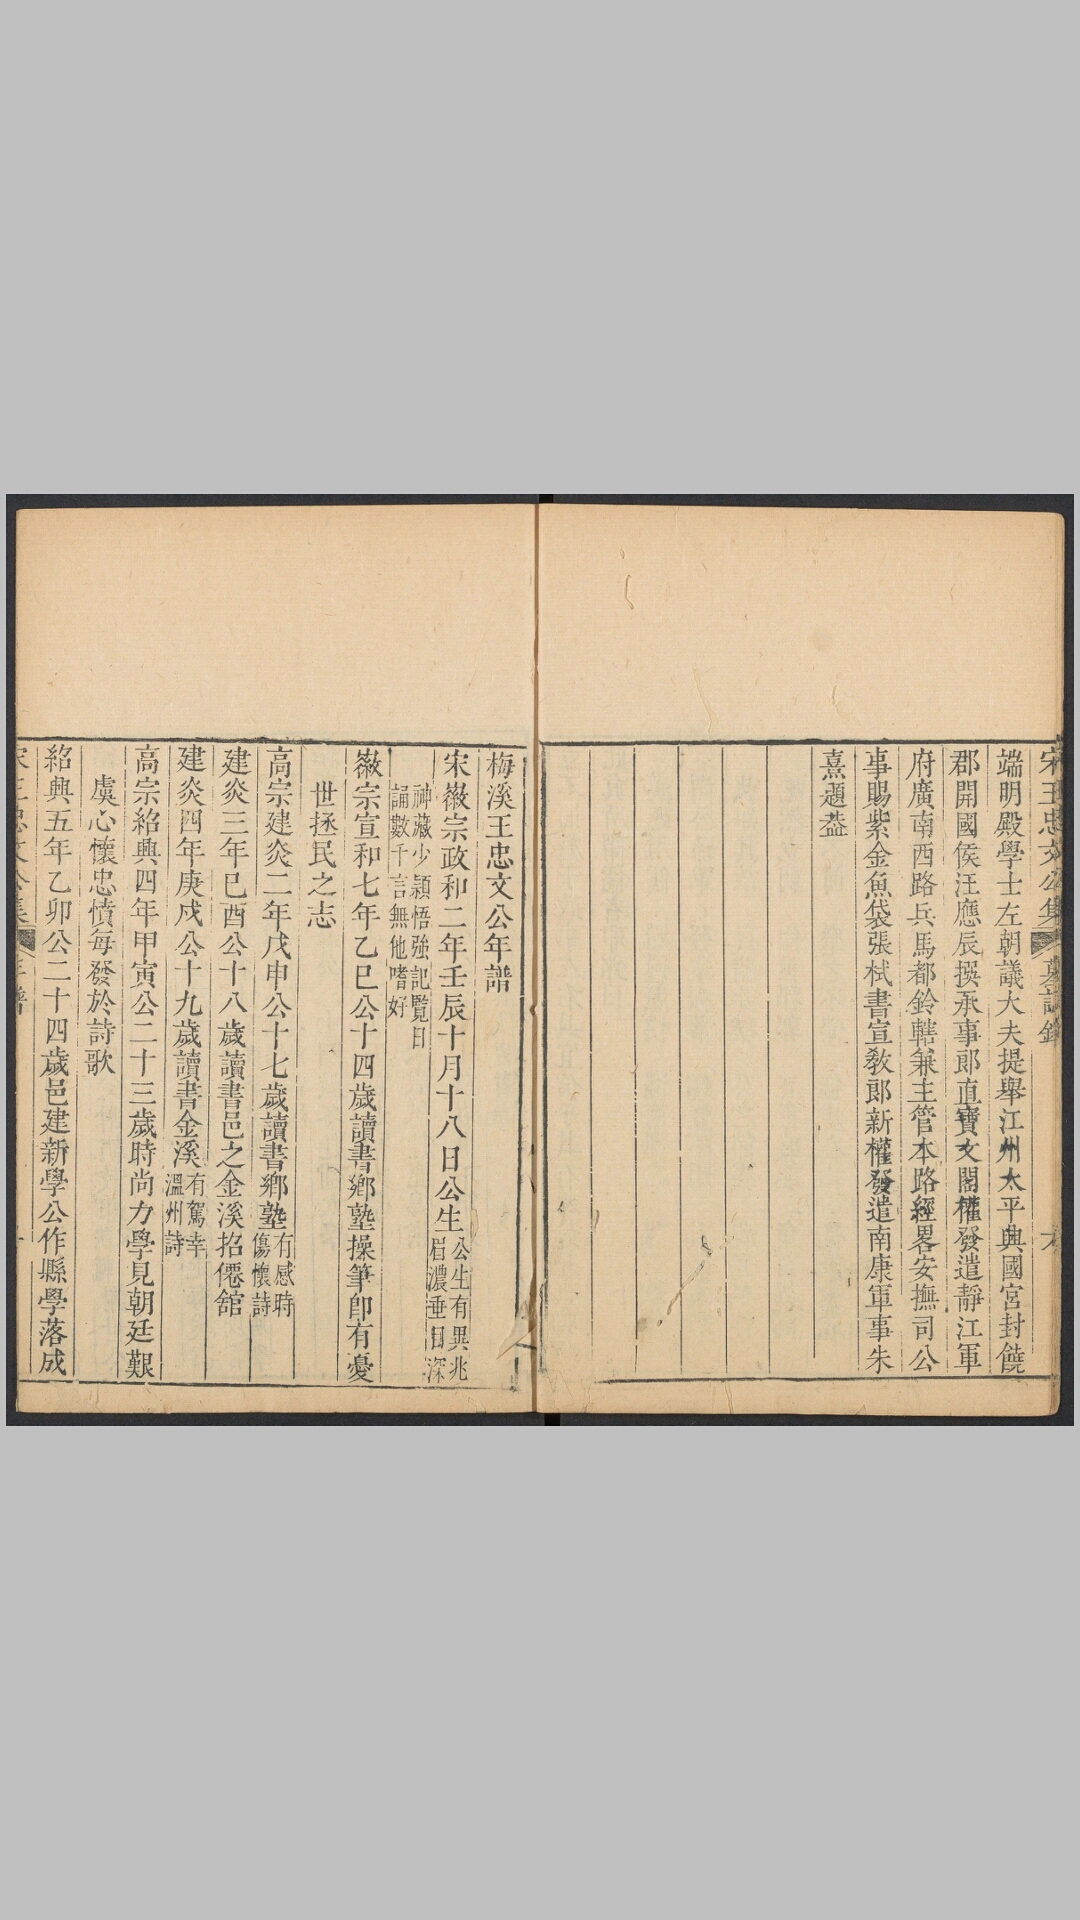 宋王忠文公集
墓誌銘
六
端明殿學士左朝議大夫提舉江州太平興國宮封饒
郡開國侯汪應辰撰承事郎直寶文閣權發遣靜江軍
府廣南西路兵馬都鈐轄兼主管本路經畧安撫司公
事賜紫金魚袋張栻書宣敎郎新權發遣南康軍事朱
熹題葢
梅溪王忠文公年譜
宋徽宗政和二年壬辰十月十八日公生公生有異兆
眉濃垂目深
神藏少穎悟強記覽日
誦數千言無他嗜好
徽宗宣和七年乙巳公十四歲讀書鄉塾操筆卽有憂
世拯民之志
高宗建炎二年戊申公十七歲讀書鄉塾有感時
傷懷詩
建炎三年己酉公十八歲讀書邑之金溪招僊舘
建炎四年庚戌公十九歲讀書金溪有駕幸
溫州詩
高宗紹興四年甲寅公二十三歲時尚力學見朝廷艱
虞心懷忠憤每發於詩歌
紹興五年乙卯公二十四歲邑建新學公作縣學落成
宋王忠文公集
年譜
一